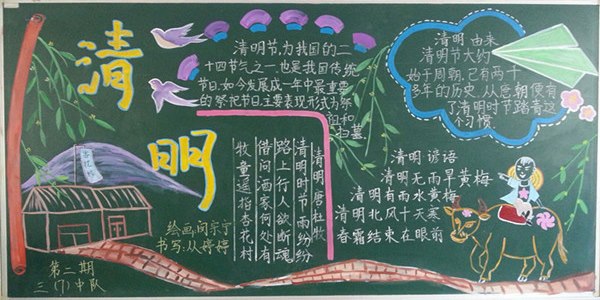 清
明
清明节,为我国的二
十四节气之一,也是我国传统
节日,如今发展成一年中最重要
的祭祀节日,主要表现形式为祭
祖和
扫墓
清明 由来
清明节大约
始于周朝,已有两千
多年的历史,从唐朝便有
了清明时节踏青这
个习惯
清明唐杜牧
清明时节雨纷纷
路上行人欲断魂
借问酒家何处有
牧童遥指杏花村
清明 谚语
清明无雨旱黄梅
清明有雨水黄梅
清明北风十天寒
春霜结束在眼前
绘画:闵宗宁
书写:从婷婷
第二期
三(7)中队